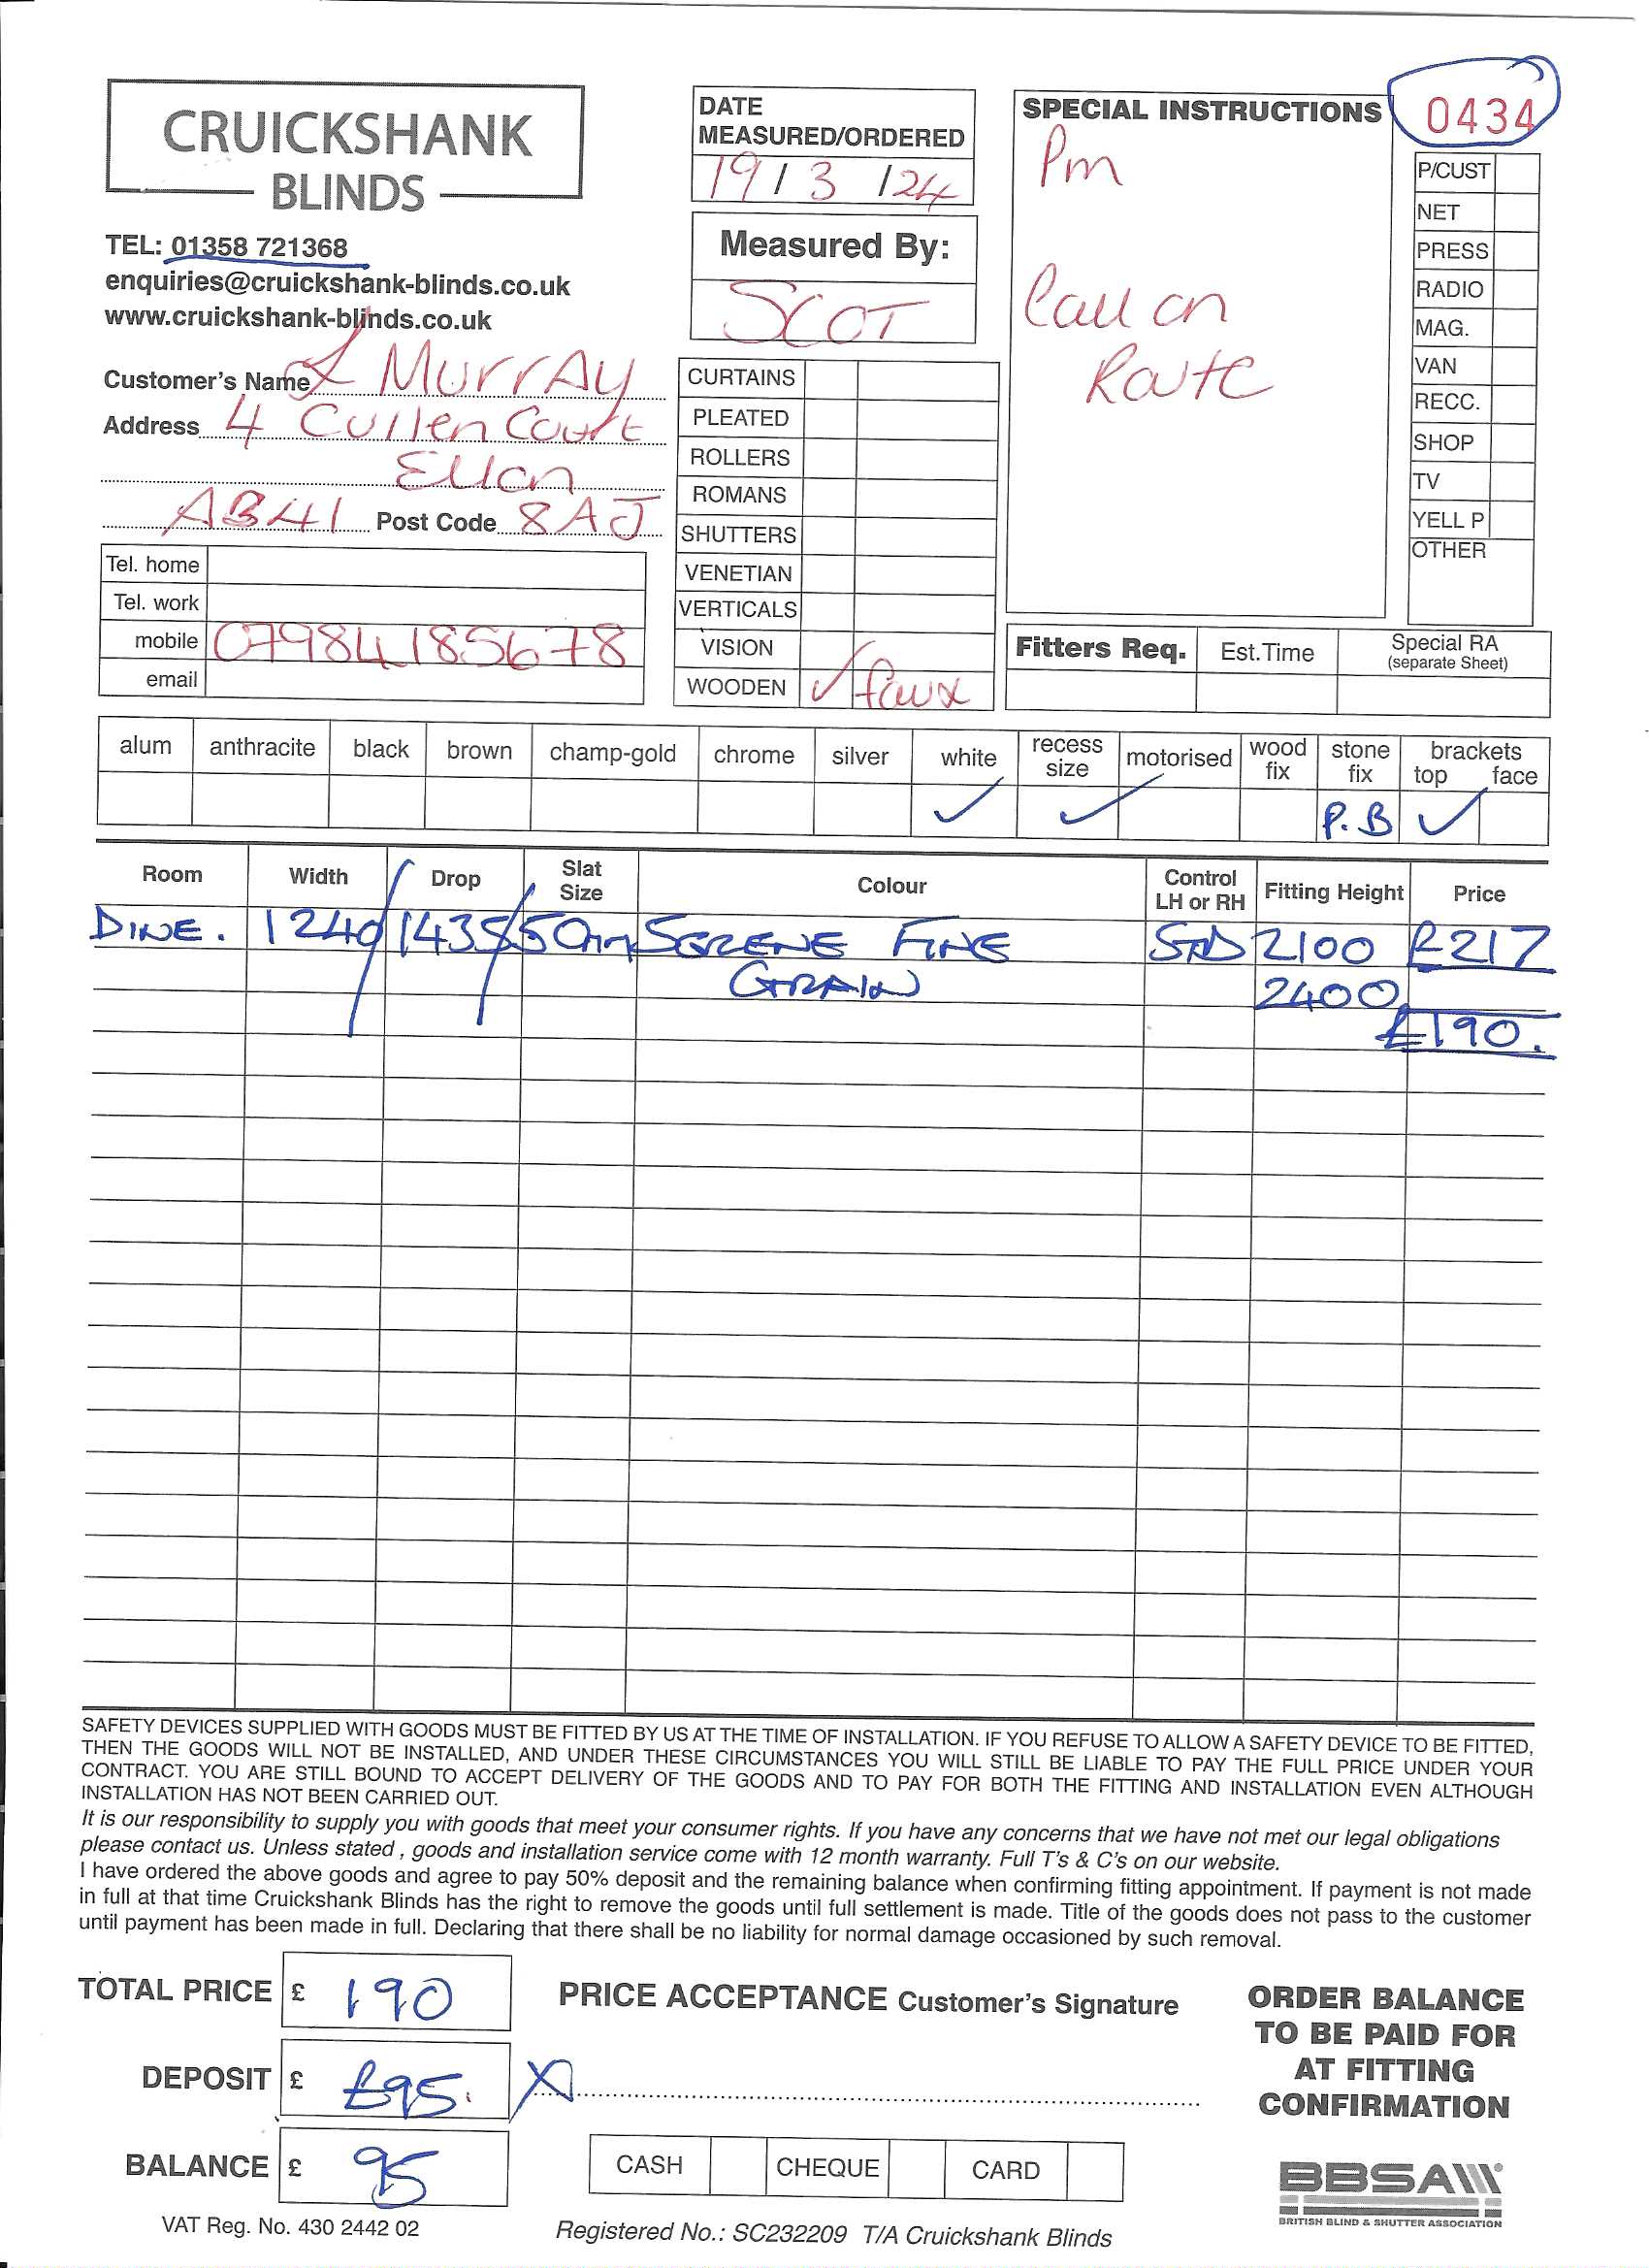 CRUICKSHANK
BLINDS
TEL: 01358 721368
enquiries@cruickshank-blinds.co.uk
www.cruickshank-blinds.co.uk
Customer's Name L Murray
Address 4 Cullen Court
Ellon
AB41 Post Code 8AJ
Tel. home
Tel. work
mobile 07984185678
email
DATE
MEASURED/ORDERED
19 / 3 / 24
Measured By:
SCOT
CURTAINS
PLEATED
ROLLERS
ROMANS
SHUTTERS
VENETIAN
VERTICALS
VISION
WOODEN ✓ faux
SPECIAL INSTRUCTIONS
Pm
Call on
Route
0434
P/CUST
NET
PRESS
RADIO
MAG.
VAN
RECC.
SHOP
TV
YELL P
OTHER
Fitters Req. Est.Time Special RA
(separate Sheet)
alum anthracite black brown champ-gold chrome silver white recess size motorised wood fix stone fix brackets top face
✓ ✓ P.B ✓
Room Width Drop Slat Size Colour Control LH or RH Fitting Height Price
DINE. 1240 1435 50mm SERENE FINE STD 2100 £217
GRAIN 2400
£190.
SAFETY DEVICES SUPPLIED WITH GOODS MUST BE FITTED BY US AT THE TIME OF INSTALLATION. IF YOU REFUSE TO ALLOW A SAFETY DEVICE TO BE FITTED,
THEN THE GOODS WILL NOT BE INSTALLED, AND UNDER THESE CIRCUMSTANCES YOU WILL STILL BE LIABLE TO PAY THE FULL PRICE UNDER YOUR
CONTRACT. YOU ARE STILL BOUND TO ACCEPT DELIVERY OF THE GOODS AND TO PAY FOR BOTH THE FITTING AND INSTALLATION EVEN ALTHOUGH
INSTALLATION HAS NOT BEEN CARRIED OUT.
It is our responsibility to supply you with goods that meet your consumer rights. If you have any concerns that we have not met our legal obligations
please contact us. Unless stated , goods and installation service come with 12 month warranty. Full T's & C's on our website.
I have ordered the above goods and agree to pay 50% deposit and the remaining balance when confirming fitting appointment. If payment is not made
in full at that time Cruickshank Blinds has the right to remove the goods until full settlement is made. Title of the goods does not pass to the customer
until payment has been made in full. Declaring that there shall be no liability for normal damage occasioned by such removal.
TOTAL PRICE £ 190
DEPOSIT £ £95.
BALANCE £ 95
VAT Reg. No. 430 2442 02
PRICE ACCEPTANCE Customer's Signature
X
CASH CHEQUE CARD
Registered No.: SC232209 T/A Cruickshank Blinds
ORDER BALANCE
TO BE PAID FOR
AT FITTING
CONFIRMATION
BBSA
BRITISH BLIND & SHUTTER ASSOCIATION